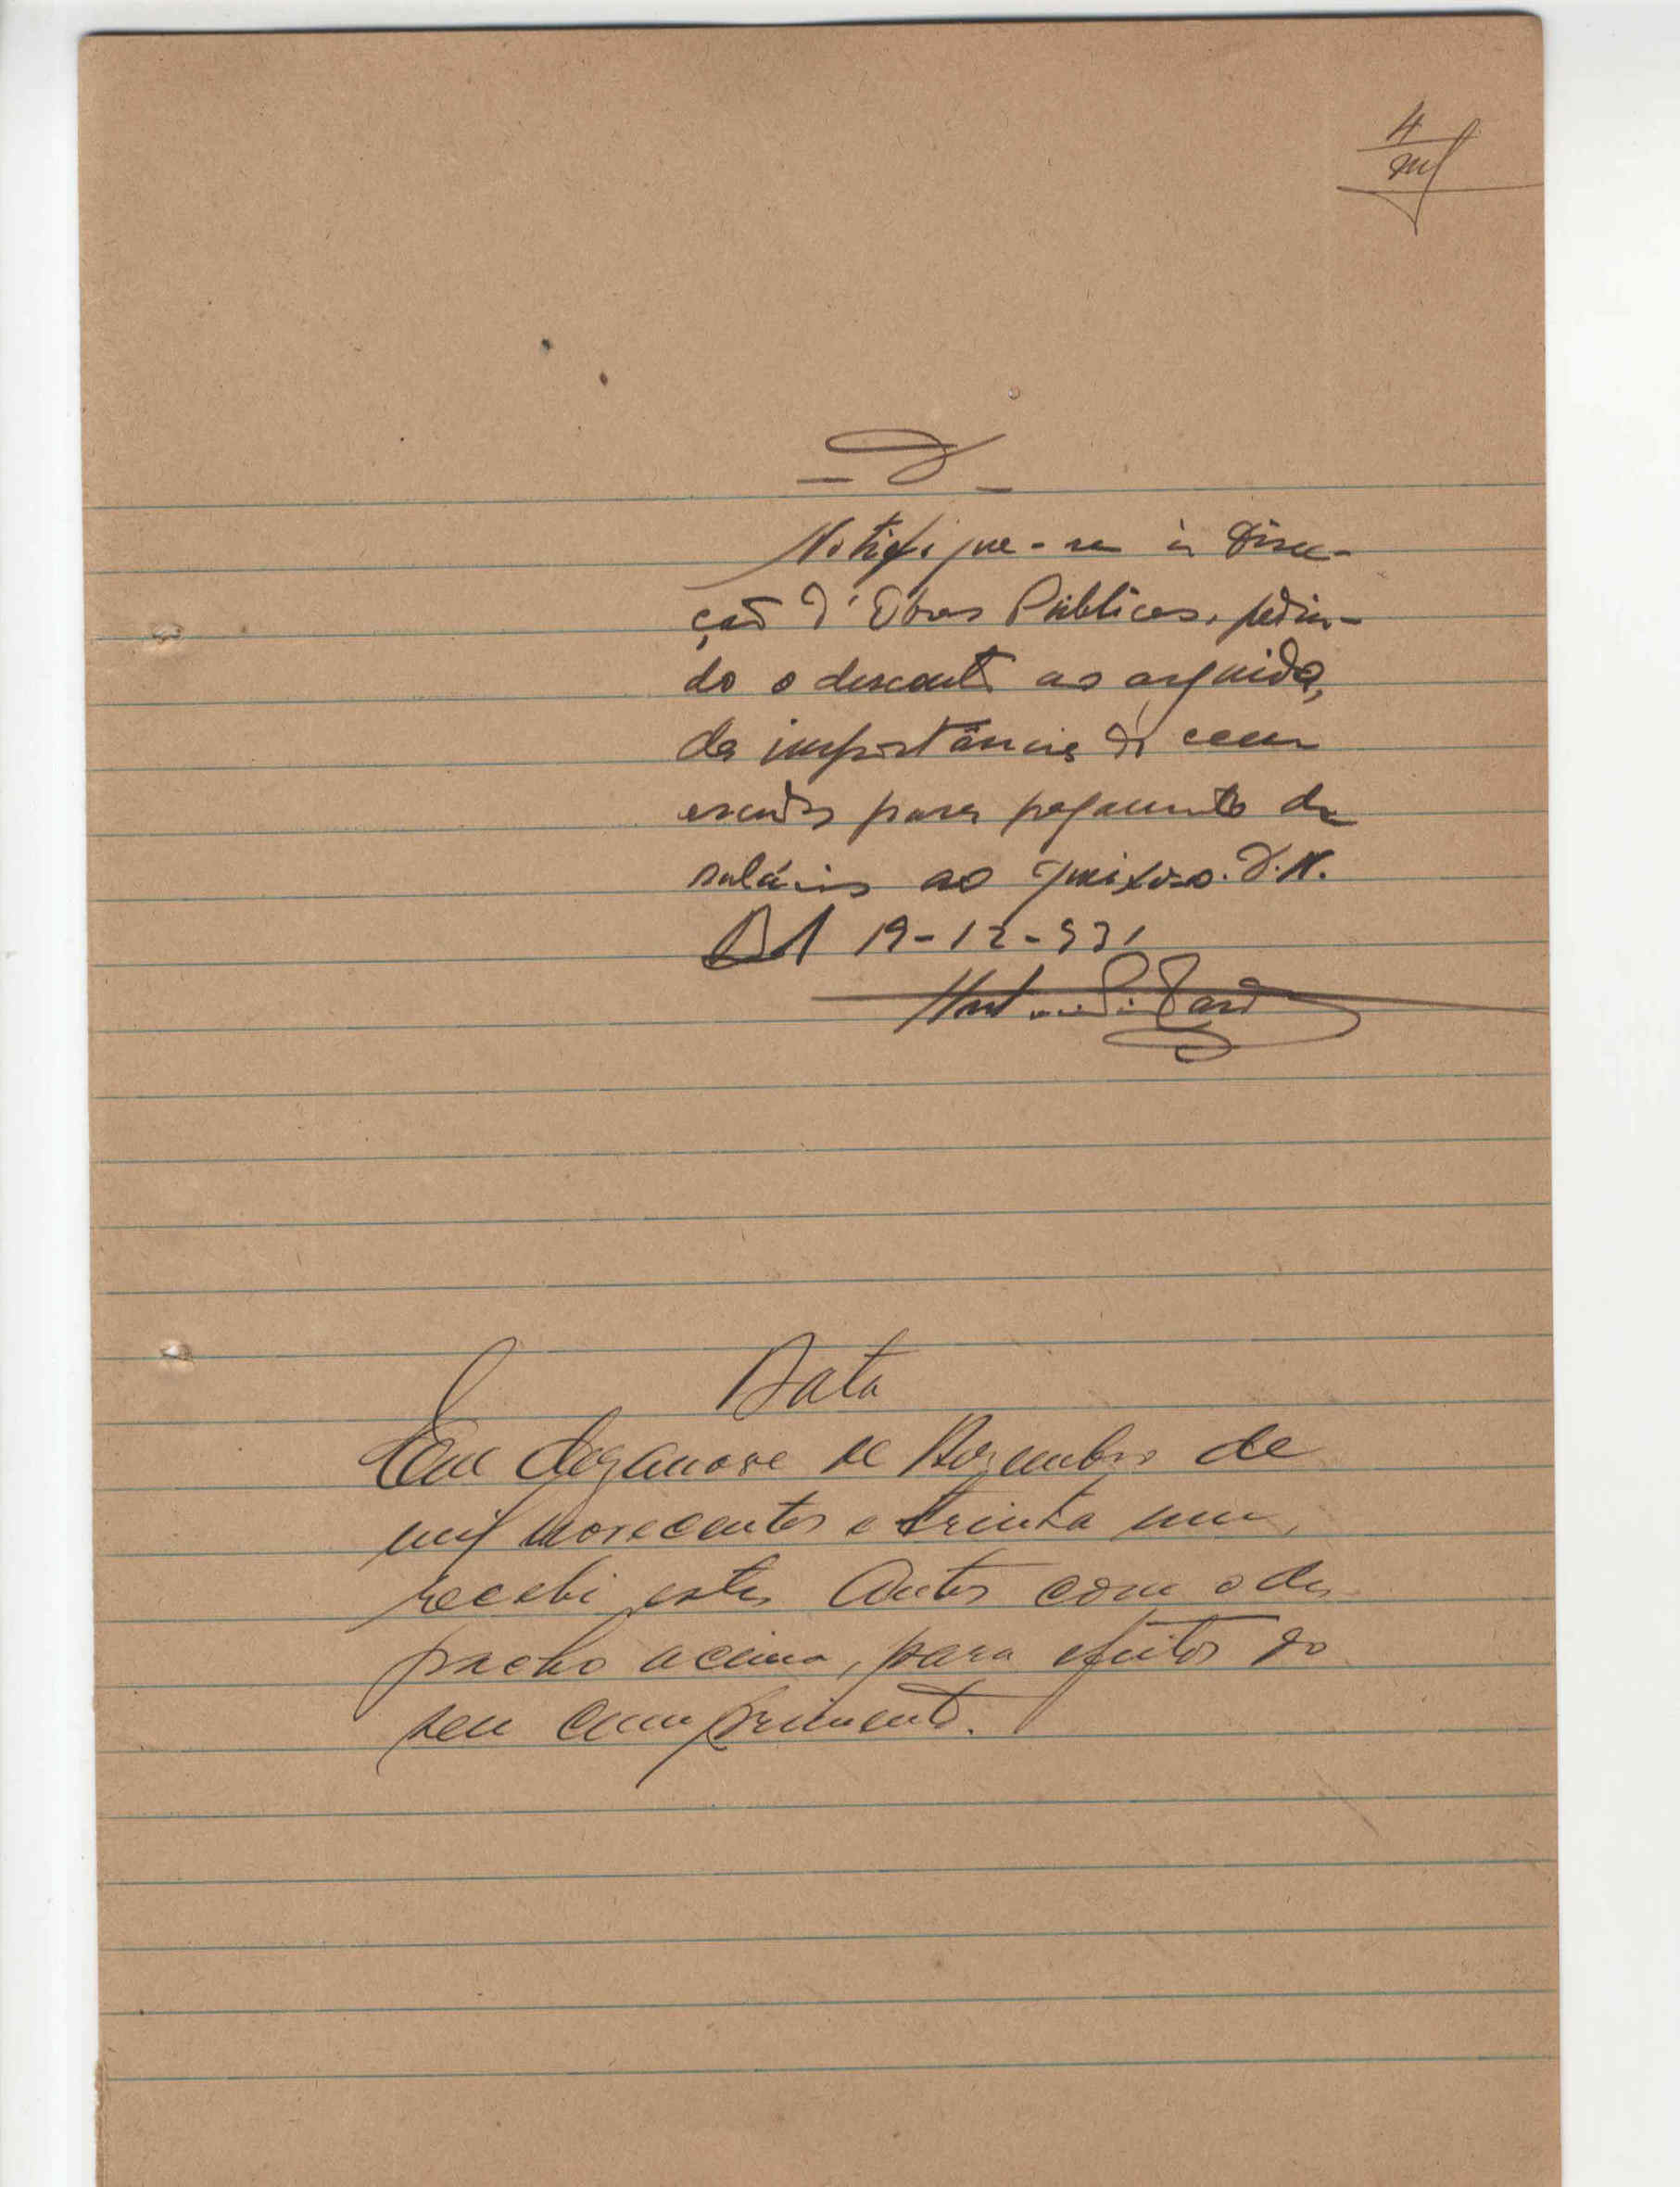 4
D
Notifique-se à Direc-
ção d'Obras Públicas, pedin-
do o desconto ao arguido,
da importância de cem
escudos para pagamento de
salários ao queixoso. D.N.
19-12-931
Data
Em dezanove de Dezembro de
mil novecentos e trinta um,
recebi estes autos com o des
pacho acima, para efeitos do
seu cumprimento.